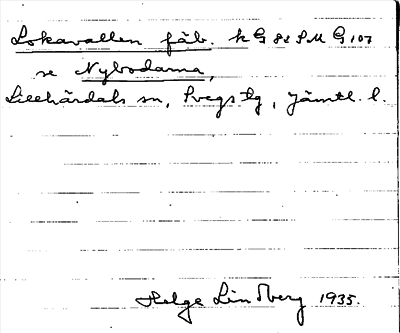 Lokavallen fäb. k G 82 S M G 107
se Nybodarna,
Lillhärdals sn, Svegs tg, Jämtl. l.
Helge Lindberg 1935.